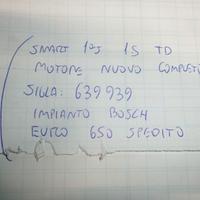 SMART 125 1S TD
MOTORE NUOVO COMPLETO
SIGLA: 639939
IMPIANTO BOSCH
EURO 650 SPEDITO